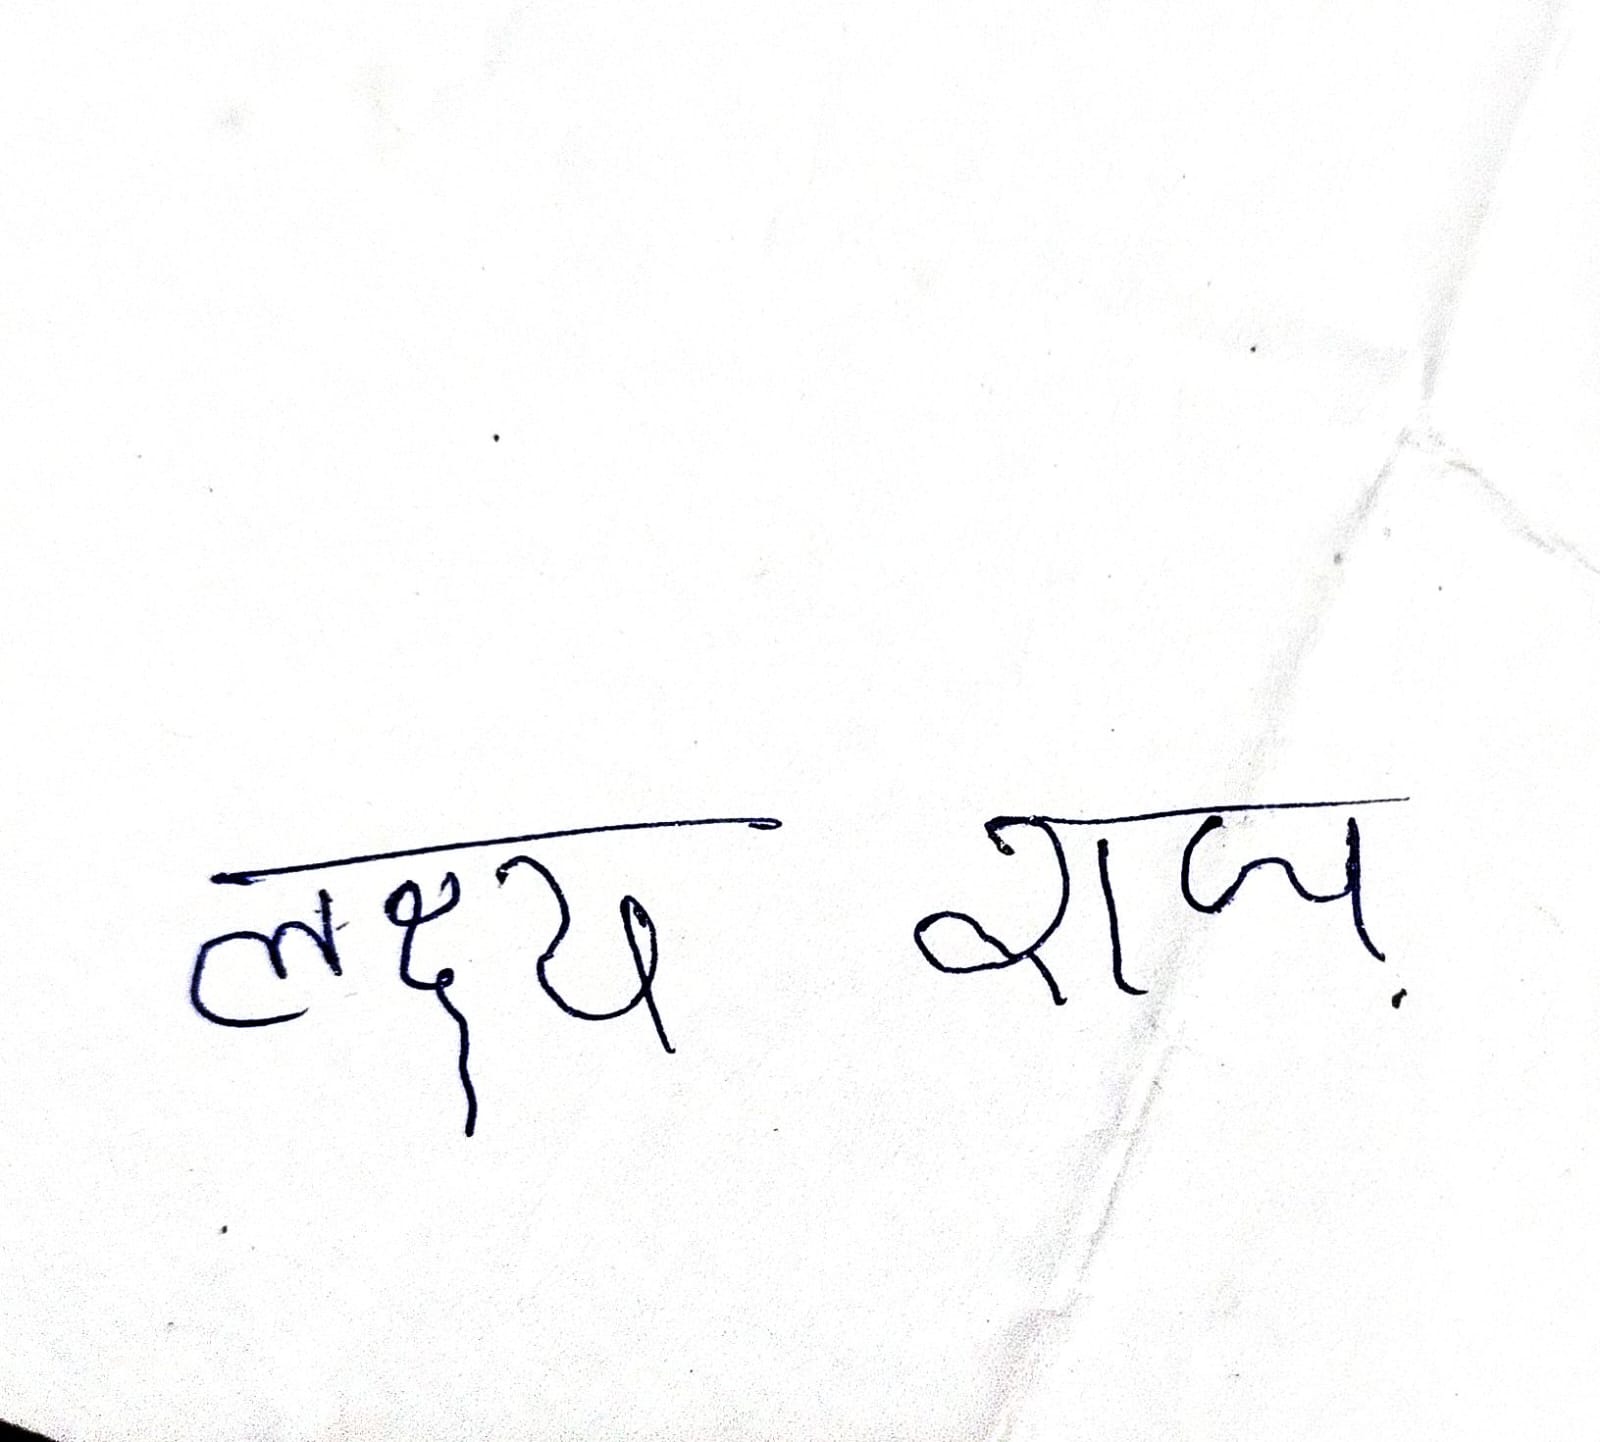 लक्ष्य राज.